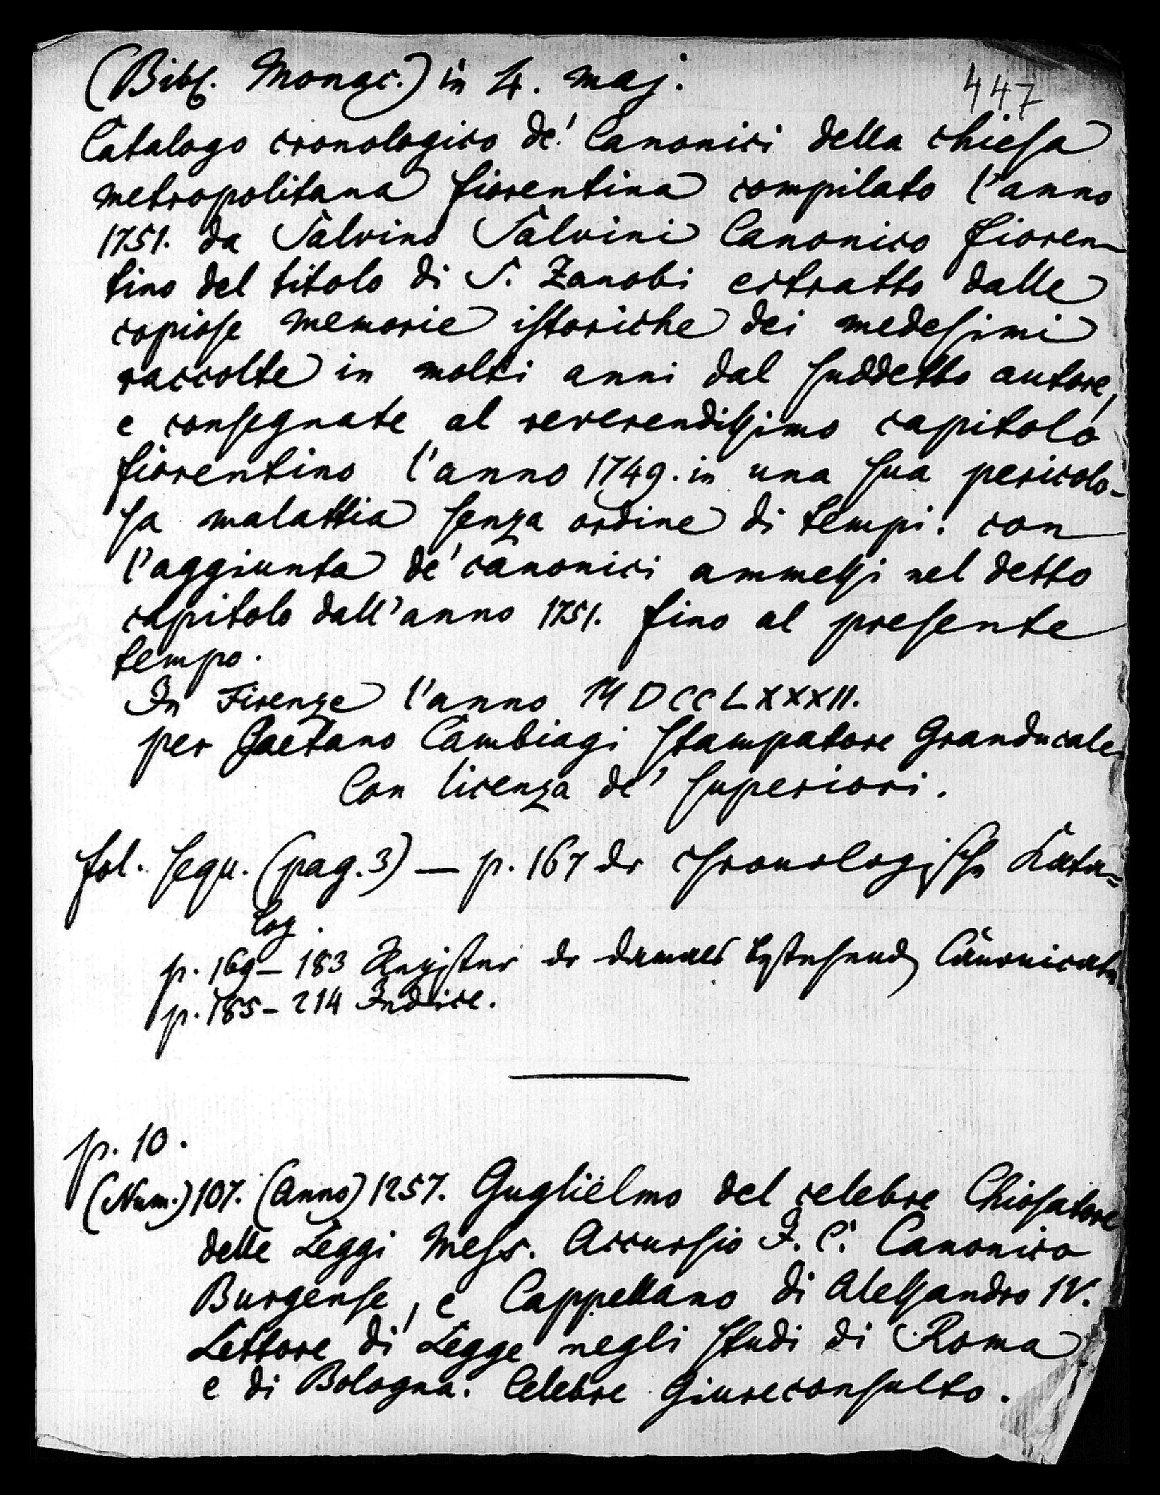 (Bibl. Monac.) in 4. maj.
447
Catalogo cronologico de' Canonici della chiesa
metropolitana fiorentina compilato l'anno
1751. da Salvino Salvini Canonico fioren-
tino del titolo di S. Zanobi estratto dalle
copiose memorie istoriche dei medesimi
raccolte in molti anni dal suddetto autore,
e consegnate al reverendissimo capitolo
fiorentino l'anno 1749. in una sua pericolo-
sa malattia senza ordine di tempi. con
l'aggiunta de' canonici ammessi nel detto
capitolo dall'anno 1751. fino al presente
tempo.
In Firenze l'anno MDCCLXXXII.
per Gaetano Cambiagi stampatore Granducale.
Con licenza de' superiori.
fol. sequ. (pag. 3) — p. 167 der chronologische Kata=
log.
p. 169 – 183 Register der damals bestehend Canonicate
p. 185 – 214 Indice.
p. 10.
(Num.) 107. (Anno) 1257. Guglielmo del celebre Chiosatore
delle Leggi Mess. Accursio I. C. Canonico
Burgense, e Cappellano di Alessandro IV.
Lettore di Legge negli studi di Roma
e di Bologna. Celebre Giureconsulto.